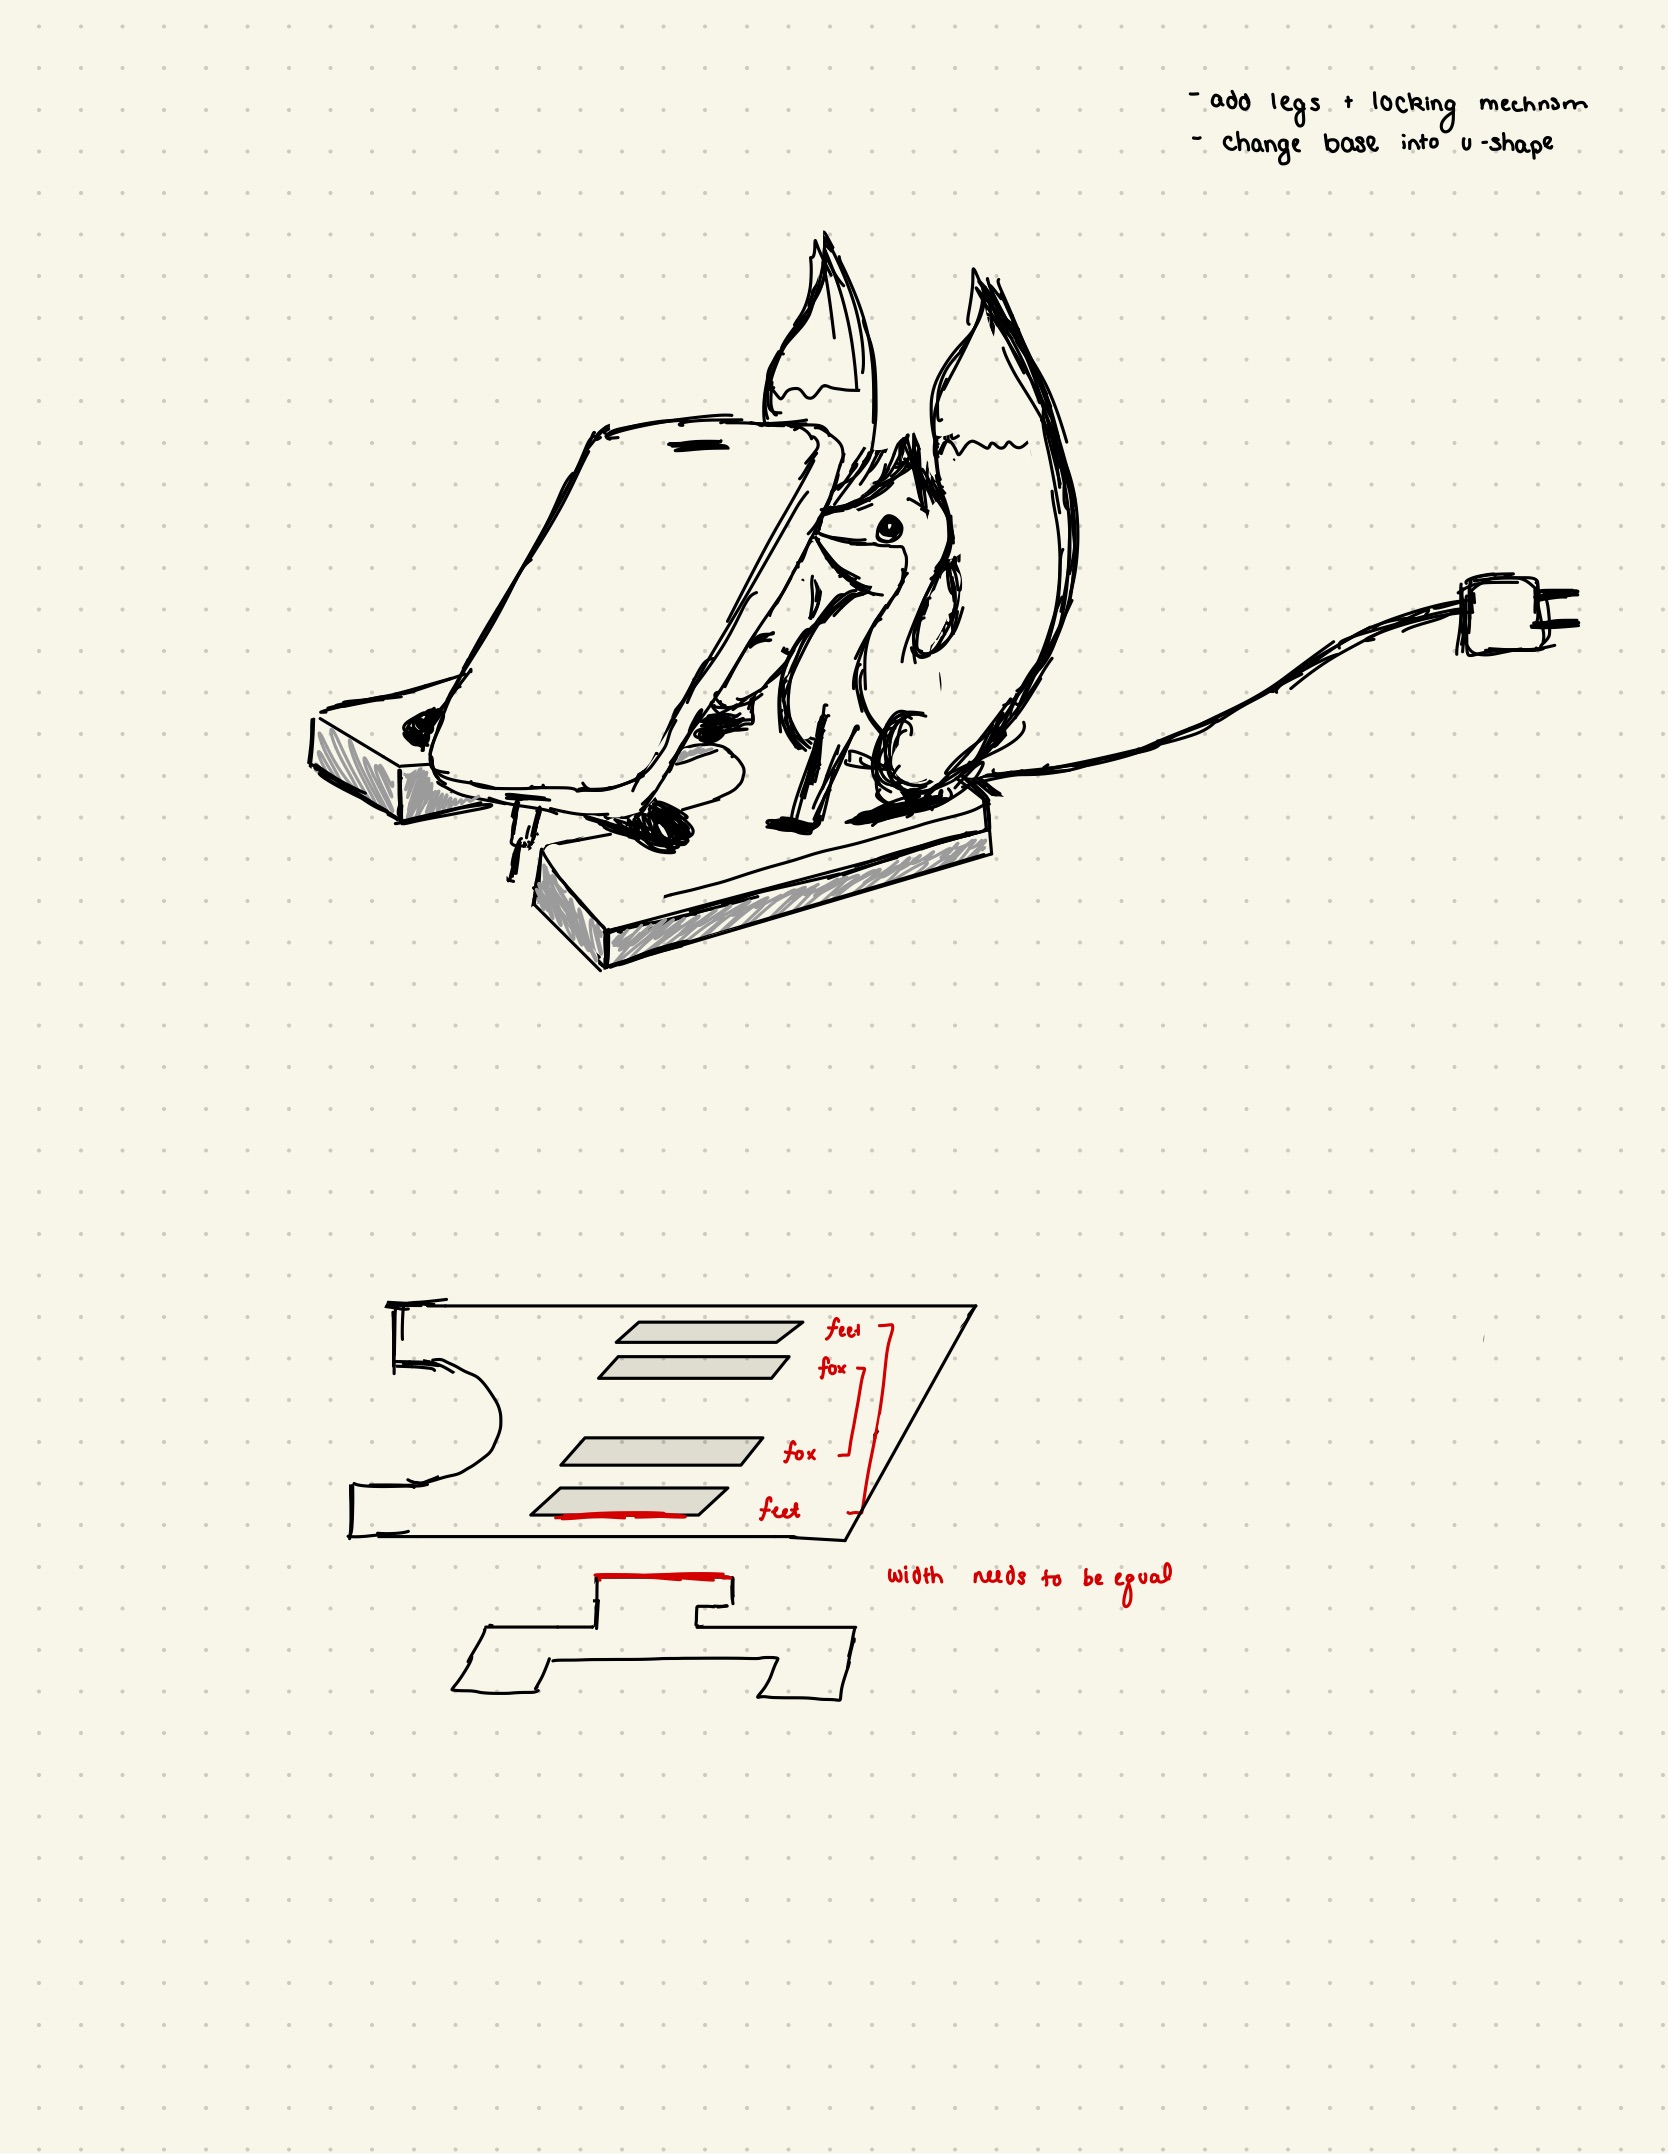 - add legs + locking mechnsm
- change base into u-shape
feet
fox
fox
feet
width needs to be equal